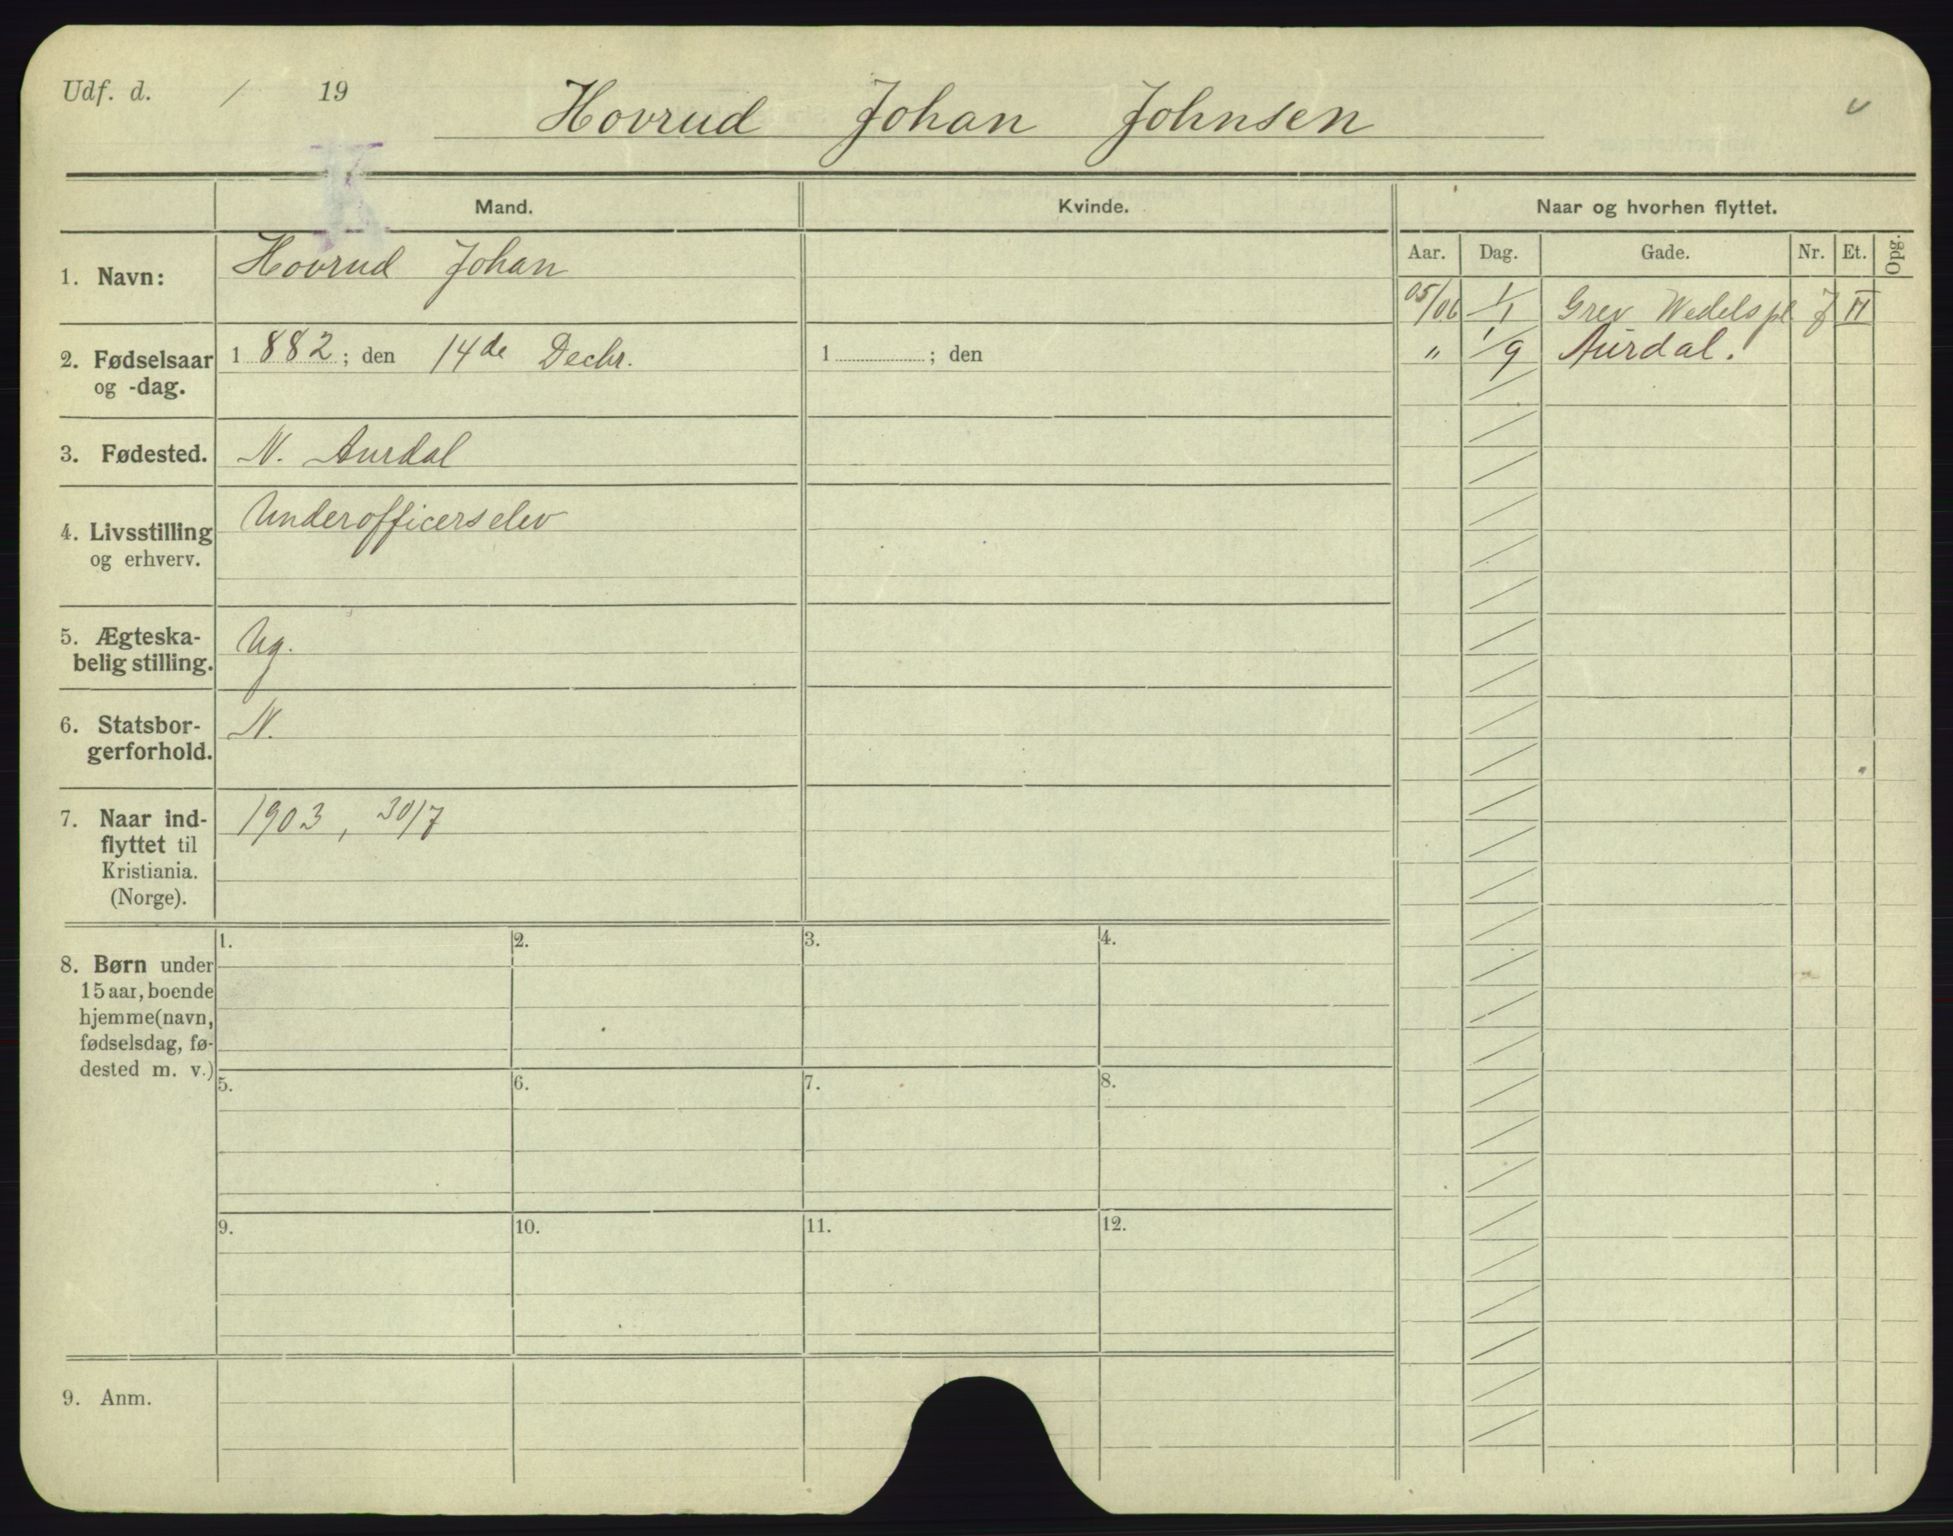 Udf. d. / 19
Hovrud Johan Johnsen
K
Mand.
Kvinde.
Naar og hvorhen flyttet.
Aar. Dag. Gade. Nr. Et. Opg.
1. Navn:
Hovrud Johan
05/06 1/1 Grev Wedels pl 7 II
2. Fødselsaar
og -dag.
1 882 ; den 14de Decbr.
1 ; den
" 1/9 Aurdal.
3. Fødested.
N. Aurdal
4. Livsstilling
og erhverv.
Underofficerselev
5. Ægteska-
belig stilling.
Ug.
6. Statsbor-
gerforhold.
N.
7. Naar ind-
flyttet til
Kristiania.
(Norge).
1903, 30/7
8. Børn under
15 aar, boende
hjemme (navn,
fødselsdag, fø-
dested m. v.)
1. 2. 3. 4.
5. 6. 7. 8.
9. 10. 11. 12.
9. Anm.